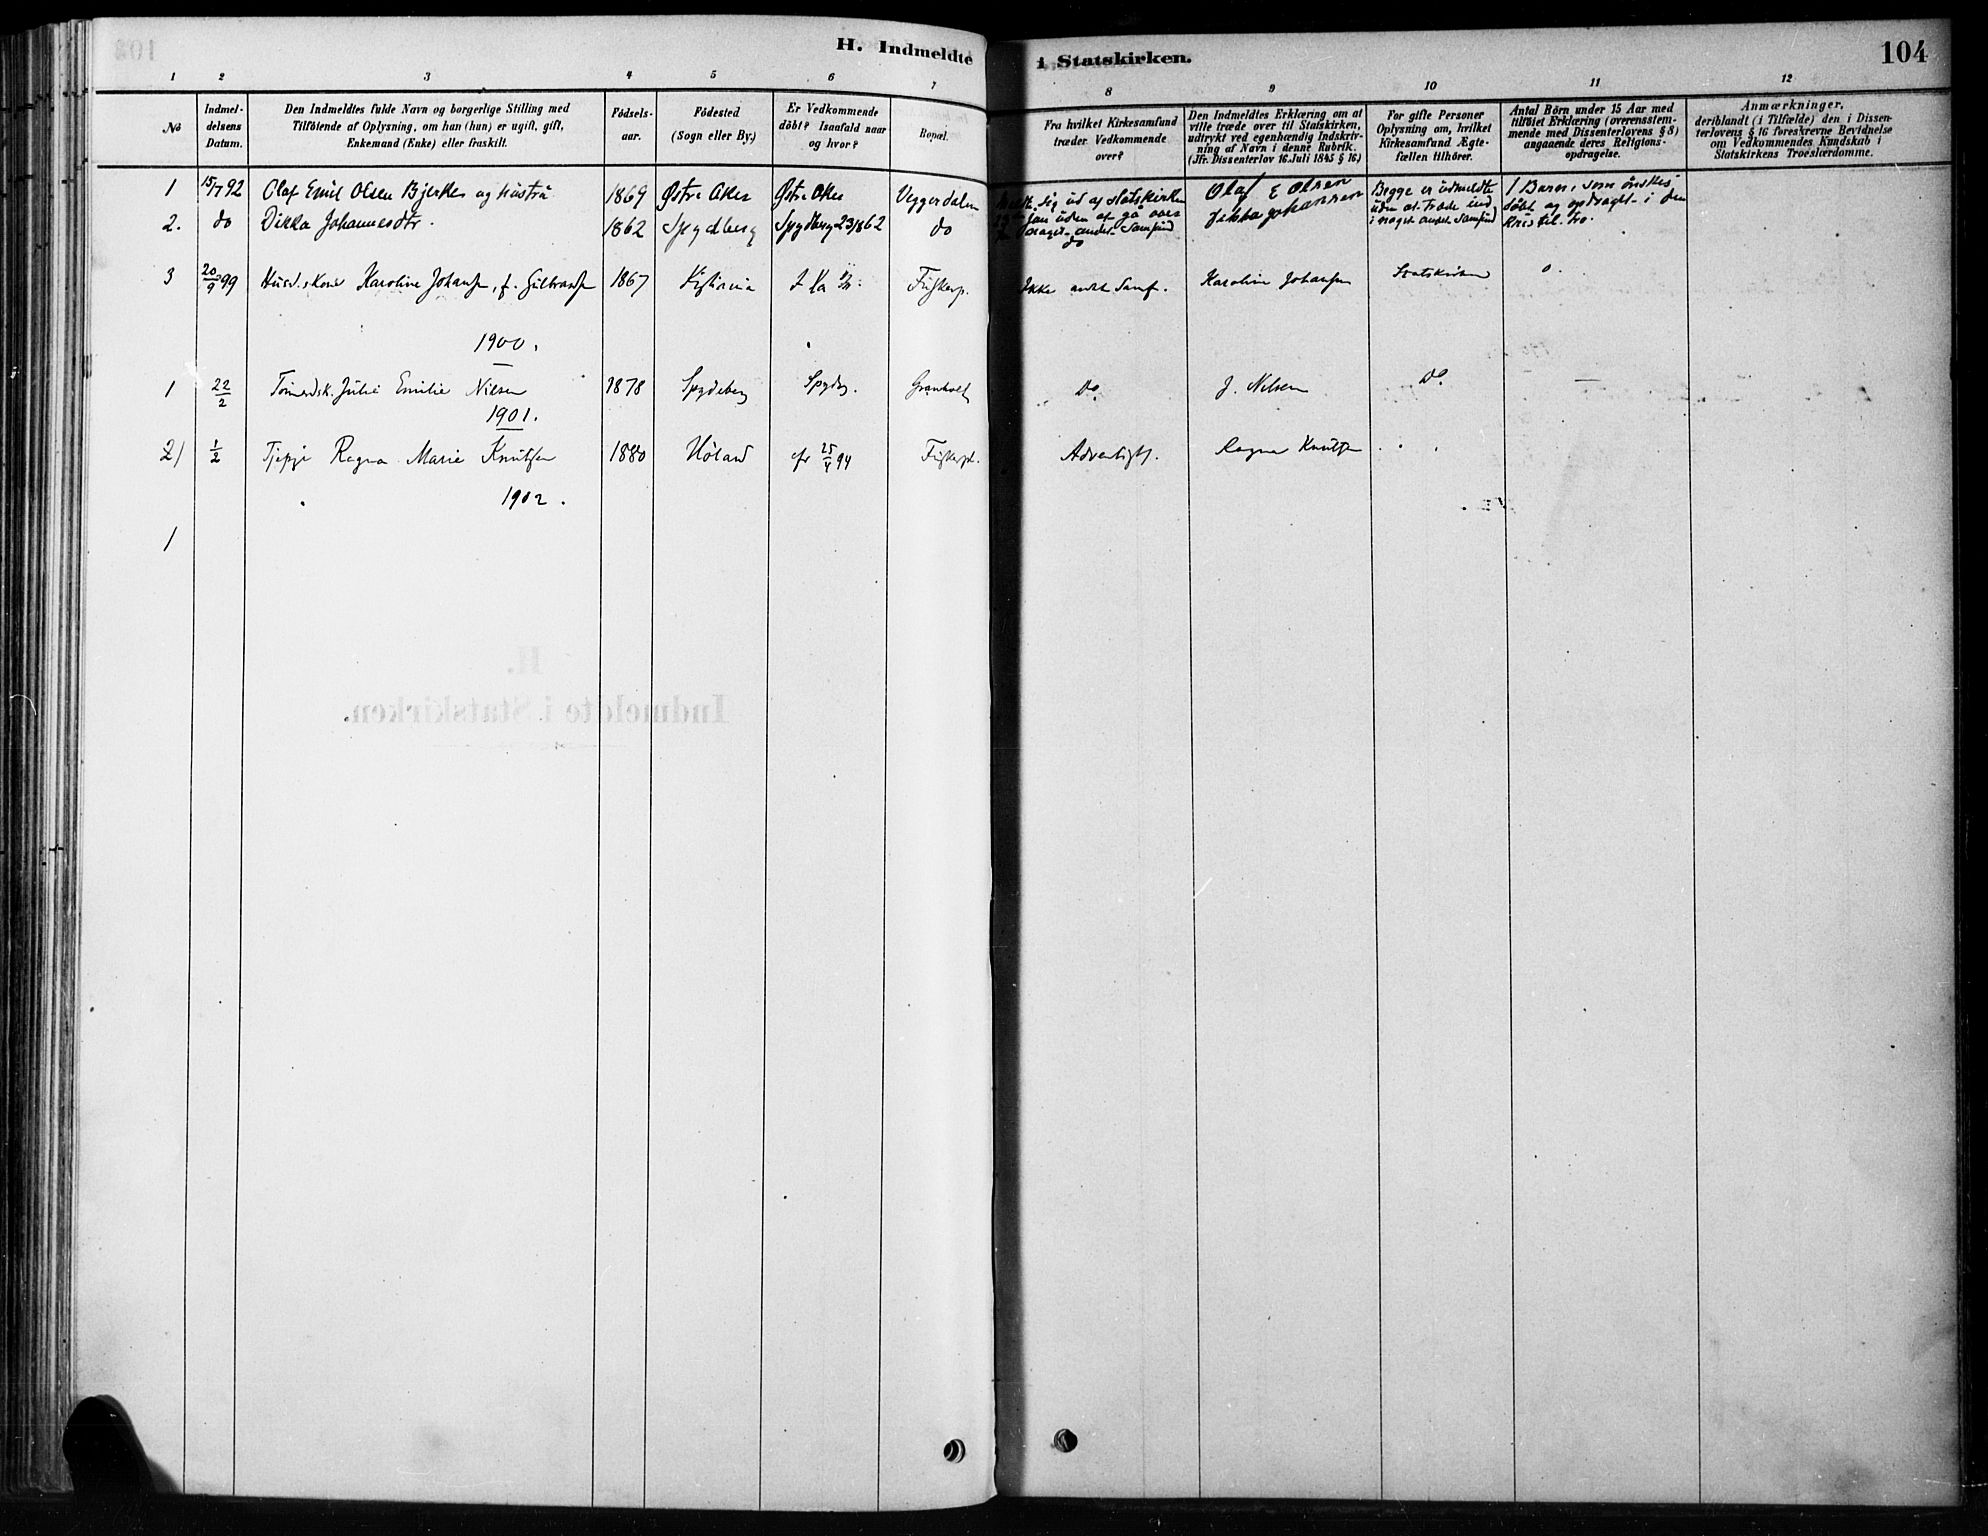 H. Indmeldte i Statskirken.
104
1 2 3 4 5 6 7 8 9 10 11 12
No
Indmel-
delsens
Datum.
Den Indmeldtes fulde Navn og borgerlige Stilling med
Tilföiende af Oplysning, om han (hun) er ugift, gift,
Enkemand (Enke) eller fraskilt.
Födsels-
aar.
Födested
(Sogn eller By.)
Er Vedkommende
döbt? Isaafald naar
og hvor?
Bopæl.
Fra hvilket Kirkesamfund
træder Vedkommende
over?
Den Indmeldtes Erklæring om at
ville træde over til Statskirken,
udtrykt ved egenhændig Indskriv-
ning af Navn i denne Rubrik.
(Jfr. Dissenterlov 16. Juli 1845 § 16)
For gifte Personer
Oplysning om, hvilket
Kirkesamfund Ægte-
fællen tilhörer.
Antal Börn under 15 Aar med
tilföiet Erklæring (overensstem-
mende med Dissenterlovens § 8)
angaaende deres Religions-
opdragelse.
Anmærkninger,
deriblandt (i Tilfælde) den i Dissen-
terlovens § 16 foreskrevne Bevidnelse
om Vedkommendes Kundskab i
Statskirkens Troeslærdomme.
1 15/7 92 Olaf Emil Olsen Bjerkes og Hustru 1869 Østre Aker Østre Aker Veggerdalen
sig ud af Statskirken
uden at gå over
noget andet Samfund
Olaf E Olsen
Begge er udmeldte
uden at træde ind
i noget andet Samfund
1 Barn, som ønskes
døbt og opdraget i den
kristel. tro.
2. do Dikka Johannesdtr. 1862 Spydberg Spydberg 23/ 62 do
do
Dikka Johannesen
3 20/9 99 Husd.skone Karoline Johansen, f. Gulbrandsen 1867 Kristiania
Ikke andet Samf. Karoline Johansen Statskirken 0.
1900.
1 22/2 Julie Emilie Nilsen 1878 Spydeberg Spydbg. Granholt Do. J. Nilsen Do. —
1901.
2) 1/2 Tjepige Ragna Marie Knutsen 1880 Høland 25/4 94 Adventist. Ragna Knutsen
1902.
1
H.
Indmeldte i Statskirken.